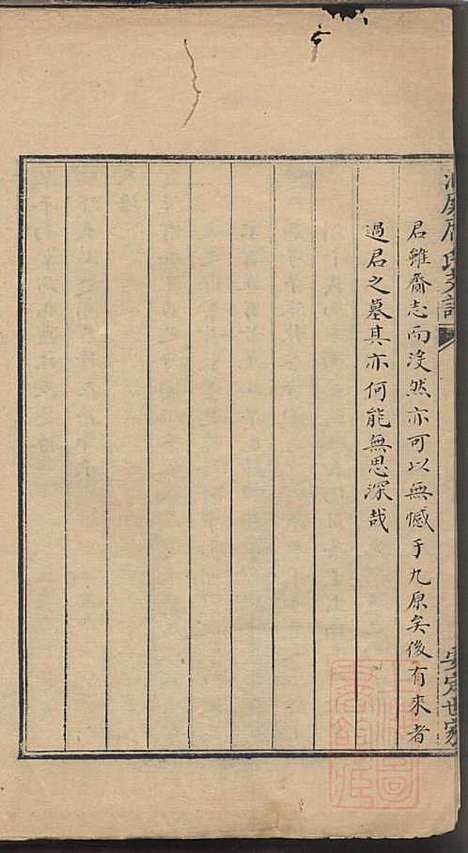 君雖齎志而沒然亦可以無憾于九原矣後有來者
過君之墓其亦何能無思深哉
安定世家